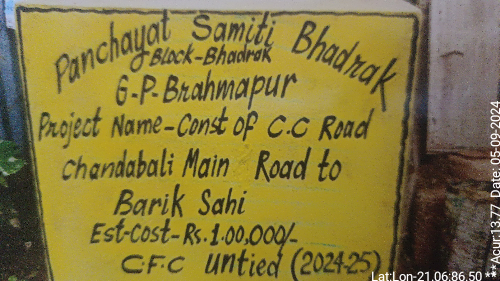 Panchayat Samiti Bhadrak
Block-Bhadrak
G-P-Brahmapur
Project Name-Const of C.C Road
Chandabali Main Road to
Barik Sahi
Est-Cost-Rs.1,00,000/-
C.F.C Untied (2024-25)
Lat:Lon-21.06:86.50 ** Acur:13.77, Date: 05-09-2024